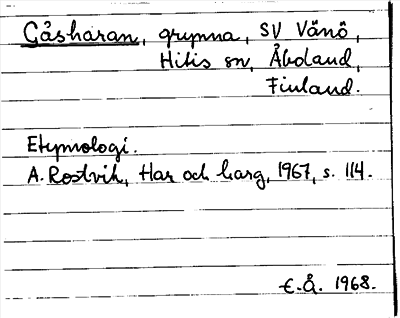 Gåsharan, grynna, SV Vänö,
Hitis sn, Åboland,
Finland.
Etymologi.
A. Rostvik, Har och harg, 1967, s. 114.
E.Å. 1968.